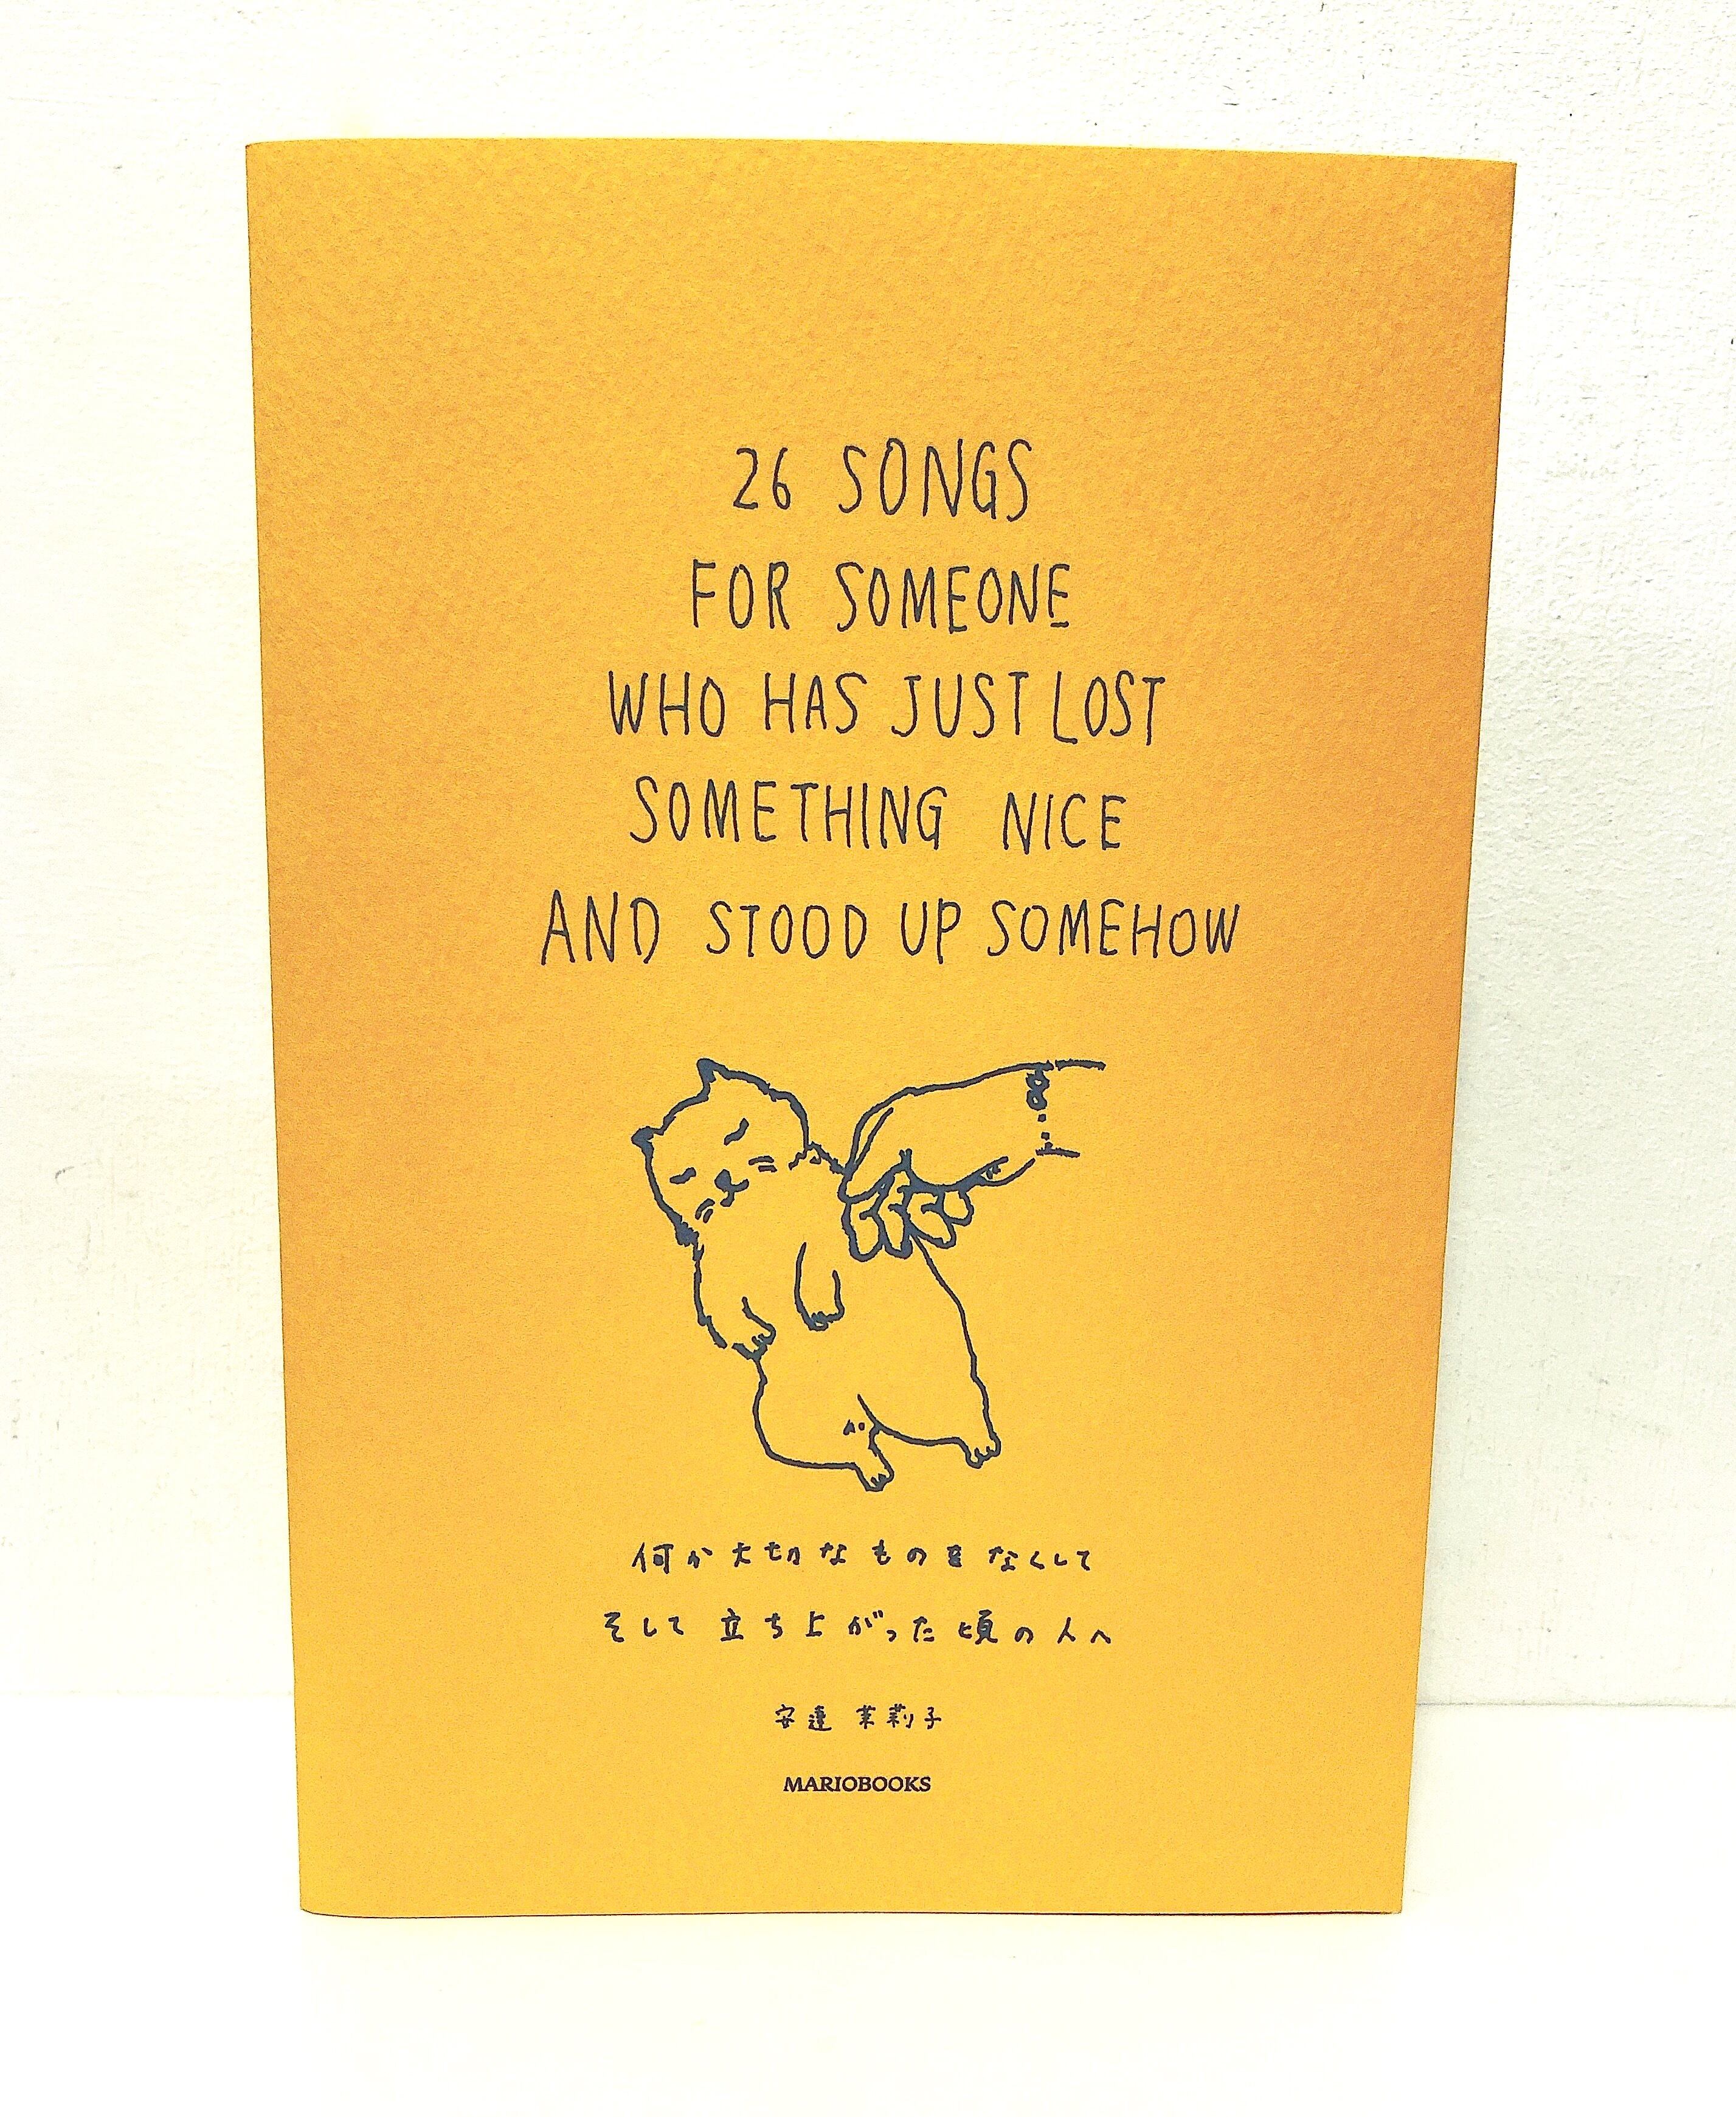 26 SONGS
FOR SOMEONE
WHO HAS JUST LOST
SOMETHING NICE
AND STOOD UP SOMEHOW
何か大切なものをなくして
そして立ち上がった頃の人へ
安達 茉莉子
MARIOBOOKS